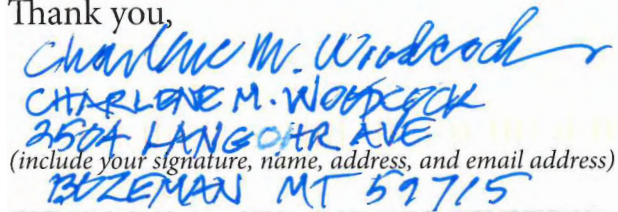 Thank you,
Charlene M. Woodcock
CHARLENE M. WOODCOCK
2504 LANGOHR AVE
(include your signature, name, address, and email address)
BOZEMAN MT 59715